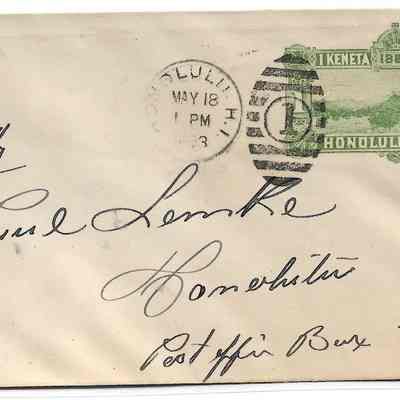 HONOLULU. H.I.
MAY 18
1 PM
1
1 KENETA
188
HONOLUL
Lemke
Honolulu
Post offic Box